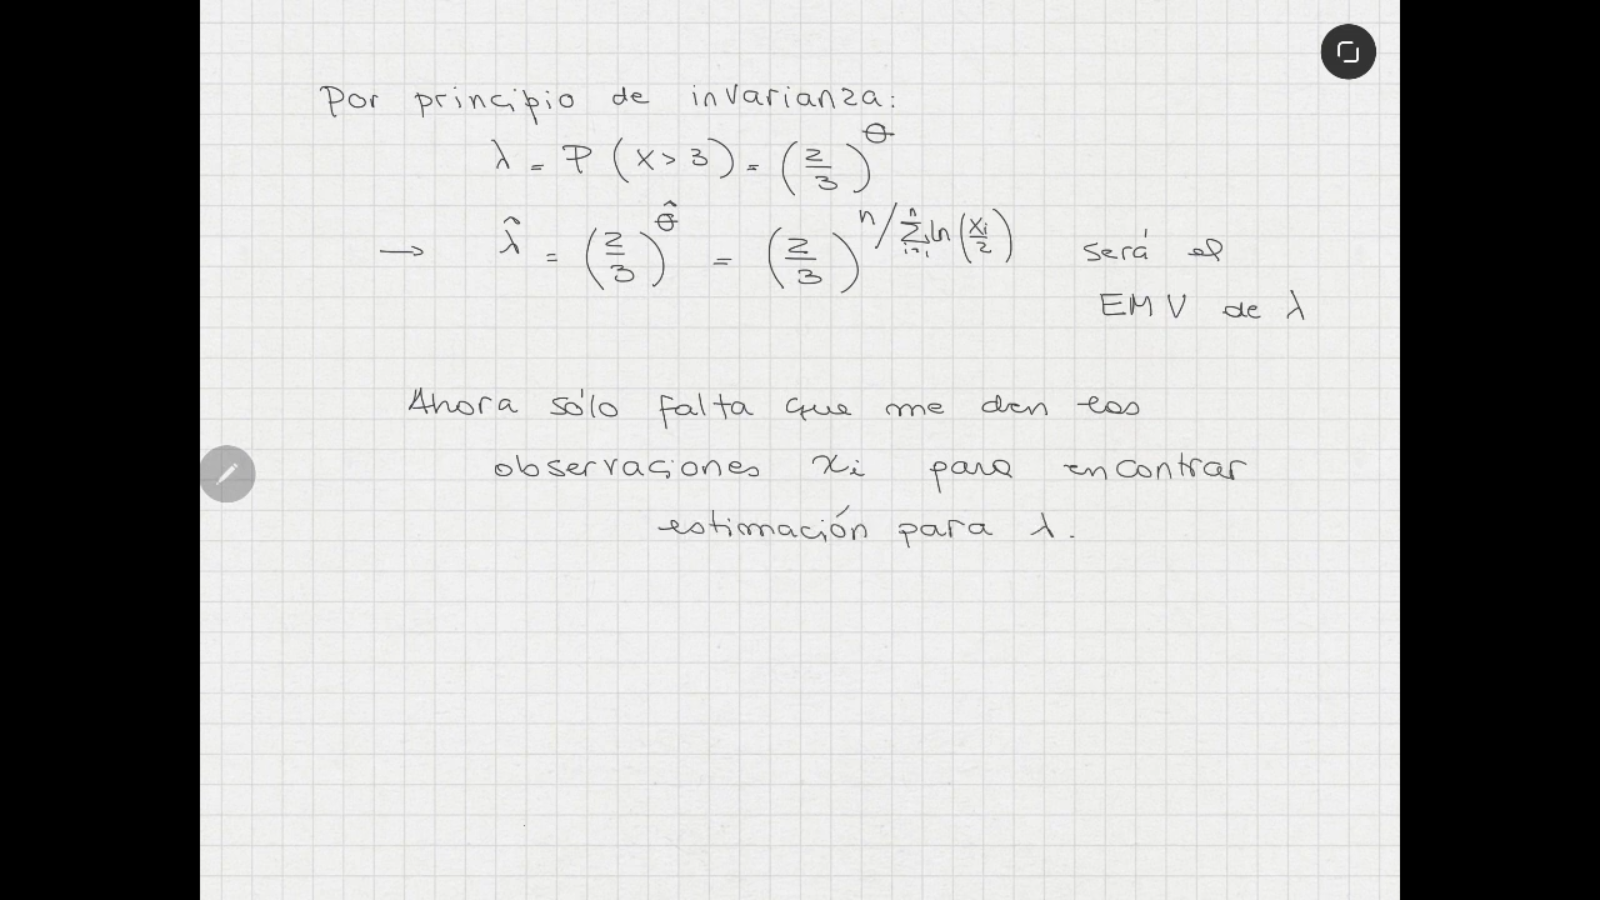 Por principio de invarianza:
λ = P (X > 3) = (2/3)^θ
→ λ̂ = (2/3)^θ̂ = (2/3)^(n/∑_{i=1}^{n} ln(Xi/2)) será el
EMV de λ
Ahora sólo falta que me den las
observaciones xi para encontrar
estimación para λ.